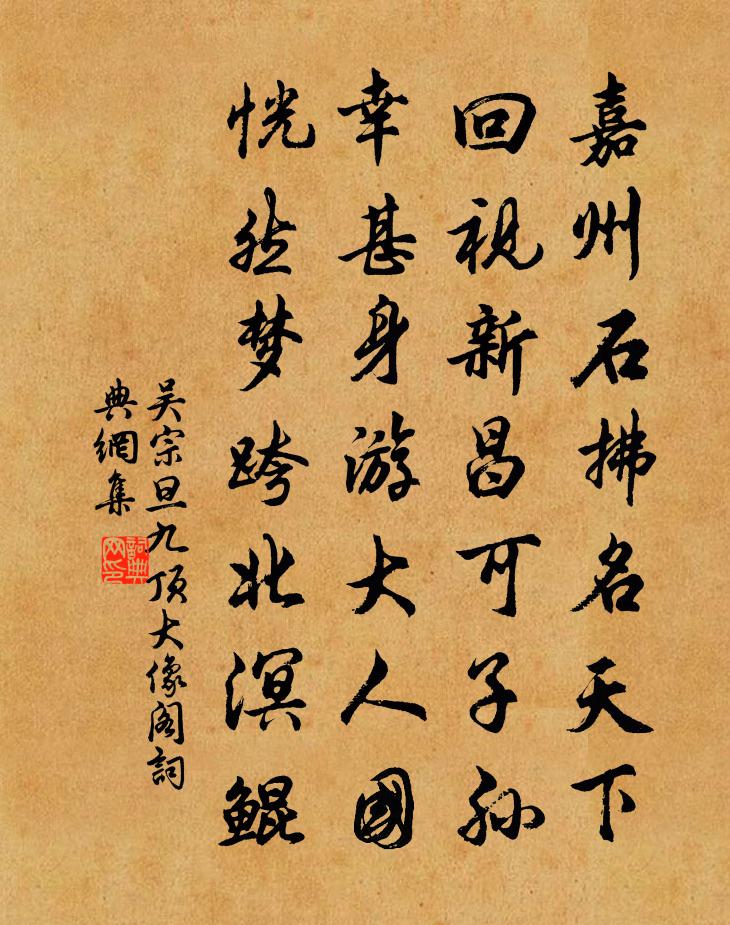 嘉州石拂名天下
回視新昌可子孙
幸甚身游大人國
恍然梦跨北溟鲲
吴宗旦九顶大像阁詞
典網集
詞典網印